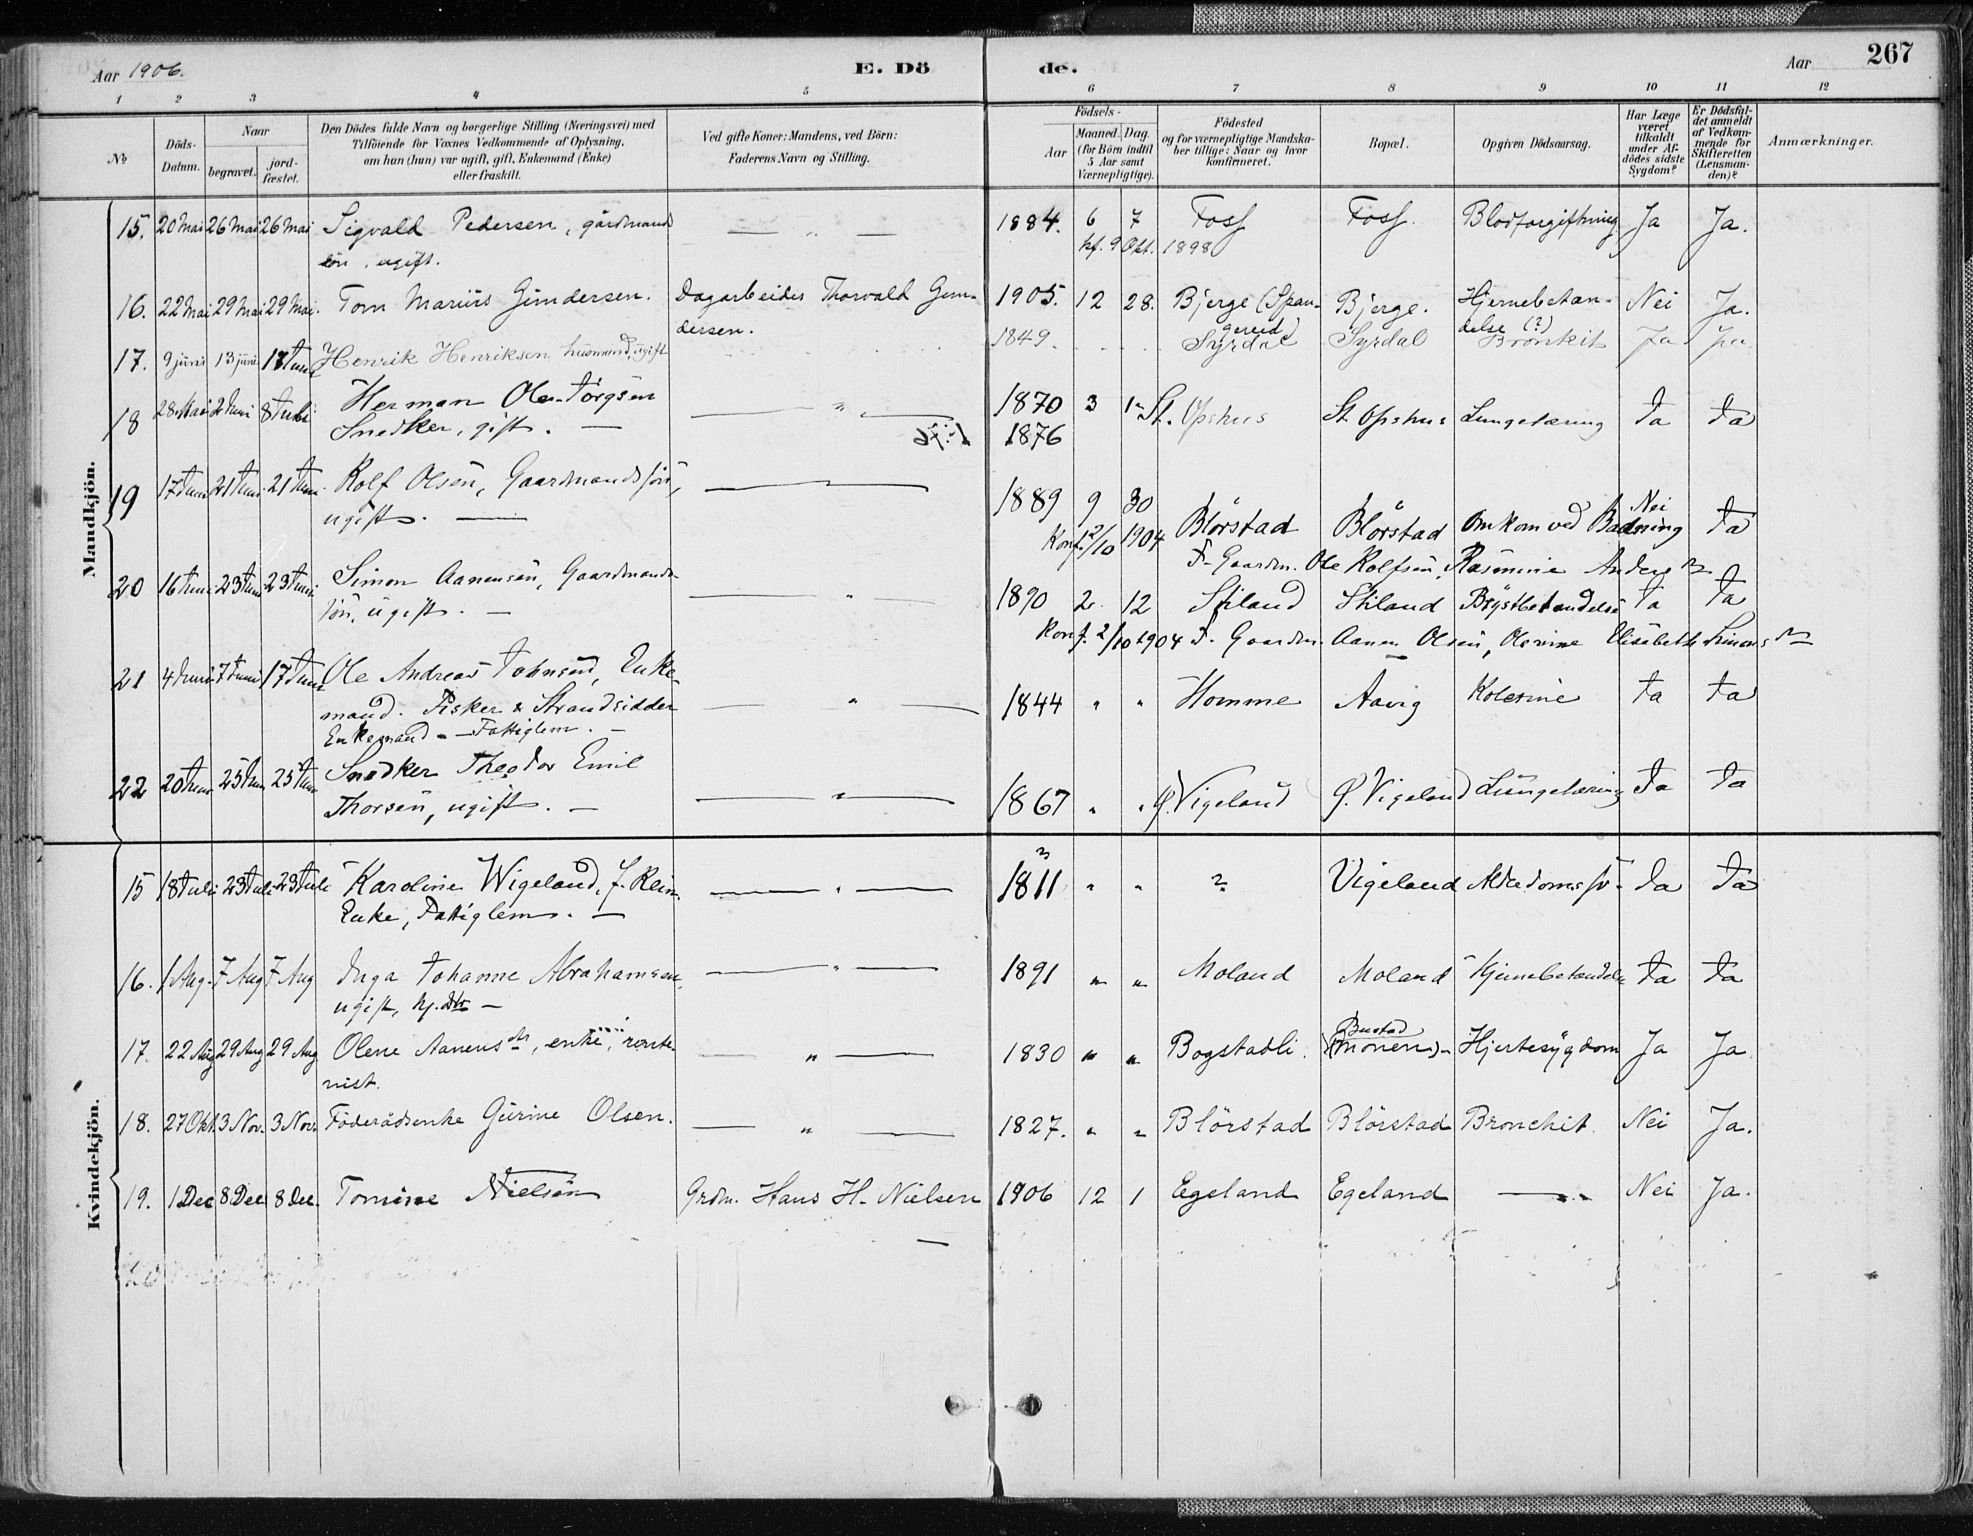 Aar 1906. E. Dö de. Aar 267
1 2 3 4 5 6 7 8 9 10 11 12
No
Döds-Datum.
Naar
begravet.
jord-fæstet.
Den Dödes fulde Navn og borgerlige Stilling (Næringsvei) med
Tilföiende for Voxnes Vedkommende af Oplysning,
om han (hun) var ugift, gift, Enkemand (Enke)
eller fraskilt.
Ved gifte Koner: Mandens, ved Börn:
Faderens Navn og Stilling.
Födsels-
Aar
Maaned. Dag.
(for Börn indtil
5 Aar samt
Værnepligtige).
Födested
og for værnepligtige Mandska-
ber tillige: Naar og hvor
konfirmeret.
Bopæl.
Opgiven Dödsaarsag.
Har Læge
været
tilkaldt
under Af-
dödes sidste
Sygdom?
Er Dödsfal-
det anmeldt
af Vedkom-
mende for
Skifteretten
(Lensman-
den)?
Anmærkninger.
Mandkjön.
15. 20 Mai 26 Mai 26 Mai Sigvald Pedersen, gårdmand — „ — 1884. 6 7 Foss Foss. Blodforgiftning Ja Ja.
sön, ugift. kf. 9 Okt. 1898
16. 22 Mai 29 Mai 29 Mai. Tom Marius Gundersen. Dagarbeider Thorvald Gun- 1905. 12 28. Bjerge (Span- Bjerge. Hjernebetæn- Nei Ja.
dersen. gereid) delse (?)
17. 9 juni 13 juni 17 Juni Henrik Henriksen, husmand, ugift 1849. Syrdal Syrdal Bronkit Ja Ja
18 28 Mai 2 Juni 8 Juli Herman Ole Jörgsen — „ — 1870 3 1 St. Opshus St. Opshus Lungetæring Ja Ja
Snedker, gift. — 1876
19 17 Juni 21 Juni 21 Juni Rolf Olsen, Gaardmandssön, — 1889 9 30 Blörstad Blörstad Omkom ved Badning Nei Ja
ugift. — Konf. 2/10 1904
F. Gaardm. Ole Rolfsen, Rasmine Anders
20 16 Juni 23 Juni 23 Juni Simon Aanensen, Gaardmands- — „ — 1890 2 12 Stiland Stiland Brystbetændelse Ja Ja
sön, ugift. — Konf. 2/10 1904 F. Gaardm. Aanen Olsen, Olevine Elisabeth Simons
21 4 Juni 7 Juni 17 Juni Ole Andreas Johnsen, Enke- — „ — 1844 „ „ Homme Aavig Kolerine Ja Ja
mand. Fisker & Strandsidder
Enkemand - Fattiglem. —
22 20 Juni 25 Juni 25 Juni Snedker Theodor Emil — „ — 1867 „ „ Ø. Vigeland Ø. Vigeland Lungetæring Ja Ja
Thorsen, ugift. —
Kvindekjön.
15 18 Juli 23 Juli 23 Juli Karoline Wigeland, f. Reim — „ — 1811 ? „ „ ? Vigeland Alderdomssv. Ja Ja
Enke, Fattiglem. —
16. 1 Aug. 7 Aug 7 Aug Inga Johanne Abrahamsen, — „ — 1891 „ „ Moland Moland Hjernebetændelse Ja Ja
ugift, hj. dtr —
17. 22 Aug 29 Aug 29 Aug Olene Aanensdtr, enke, rente- — „ — 1830 „ „ Bogstadli. Bustad (Monen) Hjertesygdom Ja Ja
nist.
18. 27 Okt. 3 Nov. 3 Nov. Föderådsenke Gurine Olsen. — „ — 1827. „ „ Blörstad Blörstad Bronchit. Nei Ja.
19. 1 Dec 8 Dec 8 Dec. Tomine Nielsen Grdm. Hans H. Nielsen 1906 12 1 Egeland Egeland — Nei Ja.